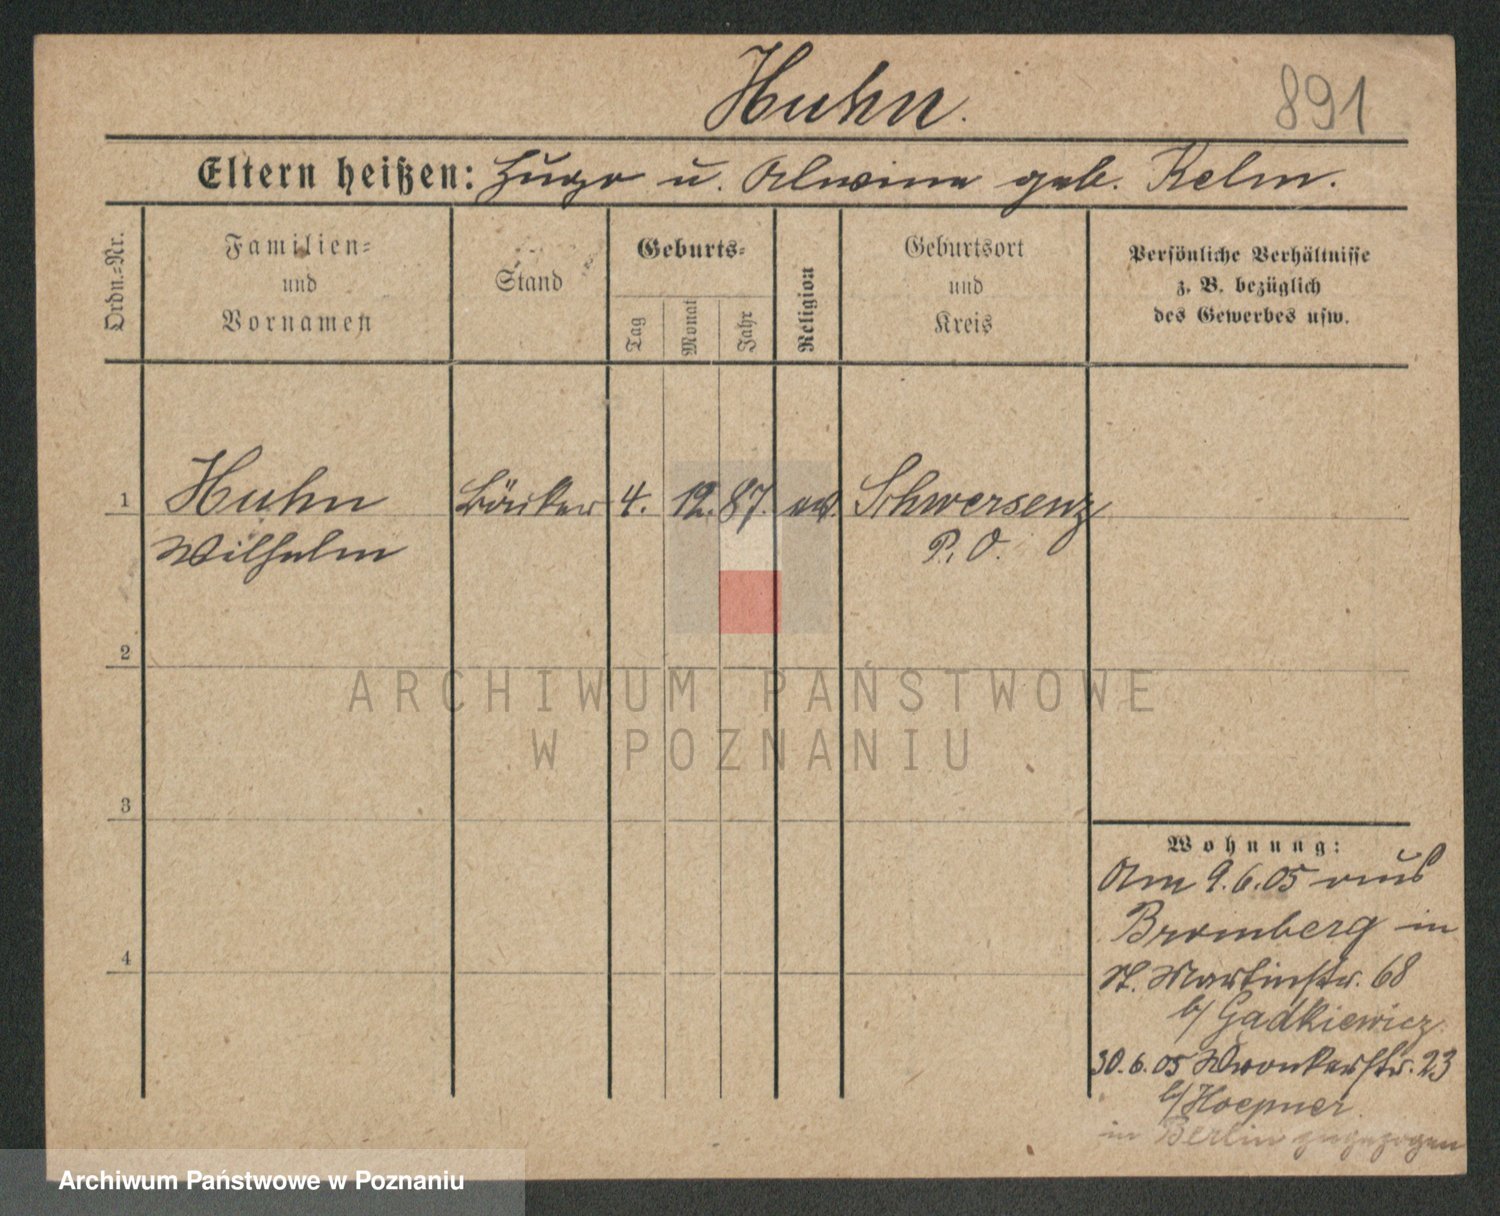 Huhn.
891
Eltern heißen: Hugo u. Alwine geb. Kelm.
Ordn.=Nr.
Familien=
und
Vornamen
Stand
Geburts=
Tag
Monat
Jahr
Religion
Geburtsort
und
Kreis
Persönliche Verhältnisse
z. B. bezüglich
des Gewerbes usw.
1 Huhn Bäcker 4. 12. 87. ev. Schwersenz
Wilhelm P. O.
2
3
4
Wohnung:
Am 9.6.05 aus
Bromberg in
St. Martinstr. 68
b/ Gadkiewicz
30.6.05 Wronkerstr. 23
b/ Hoepner
in Berlin zugezogen
ARCHIWUM PAŃSTWOWE
W POZNANIU
Archiwum Państwowe w Poznaniu